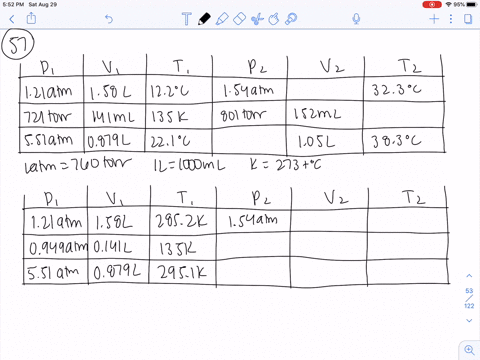 5:52 PM Sat Aug 29
95%
57
P1 V1 T1 P2 V2 T2
1.21 atm 1.58 L 12.2°C 1.54 atm 32.3°C
721 torr 141 mL 135 K 801 torr 152 mL
5.51 atm 0.879 L 22.1°C 1.05 L 38.3°C
1 atm = 760 torr 1 L = 1000 mL K = 273 + °C
P1 V1 T1 P2 V2 T2
1.21 atm 1.58 L 285.2 K 1.54 atm
0.949 atm 0.141 L 135 K
5.51 atm 0.879 L 295.1 K
53
/
122